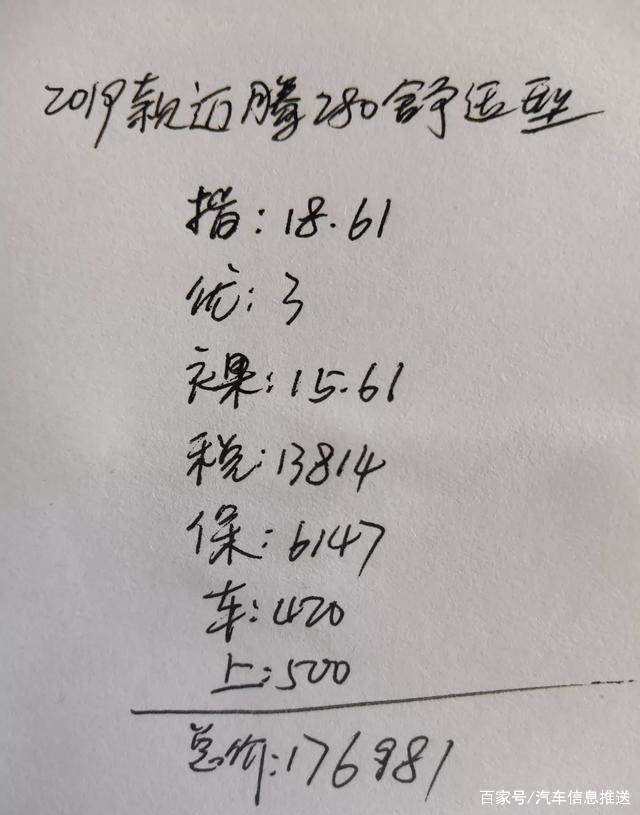 2019款迈腾280舒适型
指:18.61
优:3
裸:15.61
税:13814
保:6147
车:420
上:500
总价:176981
百家号/汽车信息推送